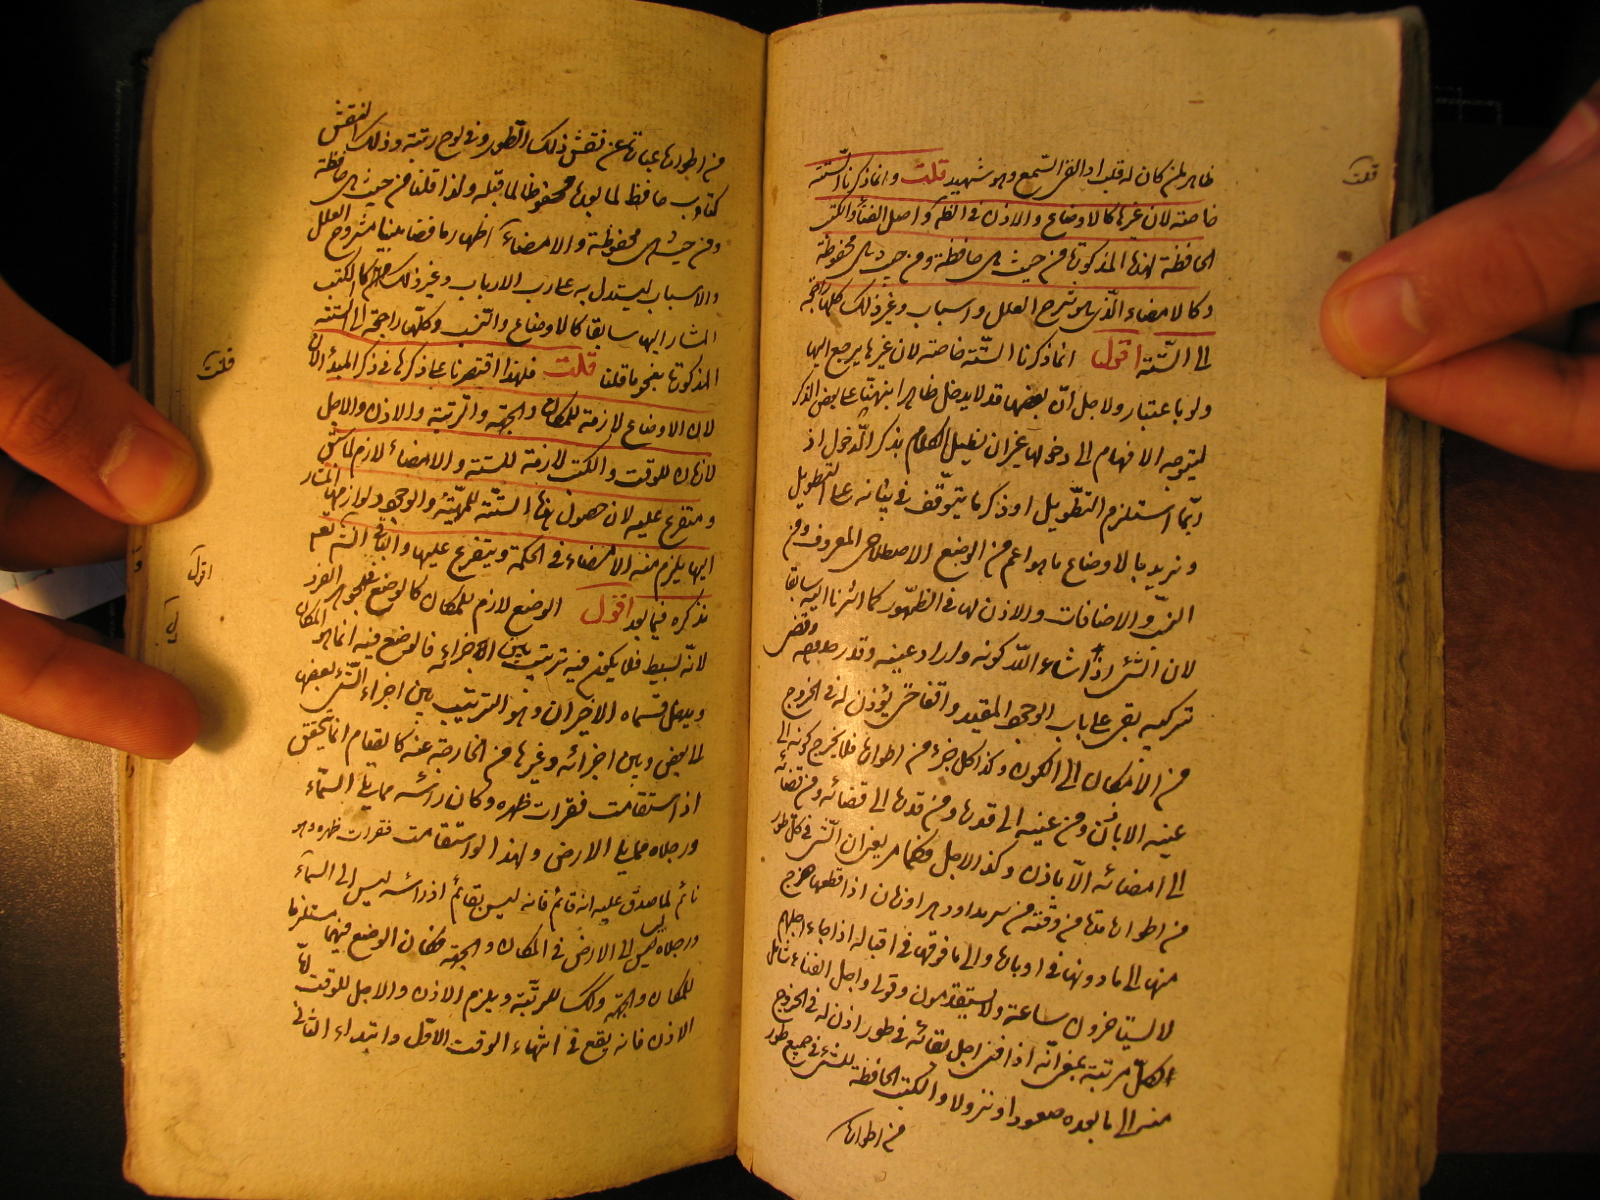 ظاهر لمن كان له قلب او القى السمع وهو شهيد قلت وانما ذكرنا الستة
خاصة لان غيرها كالاوضاع والاذن في الظهور واصل الفناء والكتب
الحافظة لهذه المذكورات من حيث هي حافظة ومن حيث هي محفوظة
وكالامضاء الذي هو شرح العلل واسباب وغير ذلك كلها راجعة
الى الستة اقول انما ذكرنا الستة خاصة لان غيرها يرجع اليها
ولو باعتبار ولاجل ان بعضها قد لا يدخل ظاهرا نبهنا على بعض الذكر
ليتوجه الافهام الى دخولها من غير ان نطيل الكلام بذكر الدخول اذ
ربما استلزم التطويل او ذكر ما يتوقف في بيانه على التطويل
ونريد بالاوضاع ما هو اعم من الوضع الاصطلاحي المعروف ومن
النسب والاضافات والاذن لها في الظهور كما اشرنا اليه سابقا
لان الشئ اذا شاء الله كونه واراد عينه وقدر حدوده وقضى
تركيبه بقى على باب الوجود المقيد واقفا حتى يؤذن له في الخروج
من الامكان الى الكون وكذا كل جزء من اطواره فلا يخرج كونه الى
عينه الا باذن ومن عينه الى قدره ومن قدره الى قضائه ومن قضائه
الى امضائه الا باذن وكذا الاجل فكما مر يعني ان الشئ في كل طور
من اطواره مدة من وقته من سرمد او دهر او زمان اذا قطعها خرج
منها الى ما دونها في ادبارها والى ما فوقها في اقباله اذا جاء اجلهم
لا يستاخرون ساعة ولا يستقدمون وقولي واجل الفناء شامل
لكل مرتبة بمعنى انه اذا فنى اجل بقائه في طور اذن له في الخروج
منه الى ما بعده صعودا ونزولا والكتب الحافظة للشئ في جميع طور
من اطواره
قلت
من اطوارها عبارة عن نقش ذلك الطور في لوح رتبته وذلك النقش
كتاب حافظ لما بعده محفوظا لما قبله ولذا قلنا من حيث هي حافظة
ومن حيث هي محفوظة والامضاء اظهار ما قضا مبينا مشروح العلل
والاسباب ليستدل به على رب الارباب وغير ذلك كالكتب
المشار اليها سابقا كالاوضاع والنسب وكلها راجعة الى الستة
المذكورة بنحو ما قلنا قلت فلهذا اقتصرنا على ذكرها في ذكر المبدأ الان
لان الاوضاع لازمة للمكان والجهة والرتبة والاذن والاجل
لازمان للوقت والكتب لازمة للستة والامضاء لازم لماشئ
ومتفرع عليه لان حصول هذه الستة للمهيئة والوجود لوازمها المشار
اليها يلزم منه الامضاء في الحكمة ويتفرع عليها والباقي انشاء الله تع
نذكره فيما بعد اقول الوضع لازم للمكان كالوضع في الجوهر الفرد
لانه بسيط فلا يكون فيه ترتيب بين الاجزاء فالوضع فيه انما هو المكان
ويبطل قسماه الاخيران وهو الترتيب بين اجزاء الشئ بعضها
لبعض وبين اجزائه وغيرها من الخارجة عنه كالقيام انما يتحقق
اذا استقامت فقرات ظهره وكان راسه مما يلي السماء
ورجلاه مما يلي الارض ولهذا لو استقامت فقرات ظهره وهو
نائم لما صدق عليه انه قائم فانه ليس بقائم اذ راسه ليس الى السماء
ورجلاه ليس الى الارض في المكان والجهة فكان الوضع فيهما مستلزما
للمكان والجهة وكذلك للرتبة ويلزم الاذن والاجل للوقت لان
الاذن فانه يقع في انتهاء الوقت الاول وابتداء الثاني
قلت
اقول